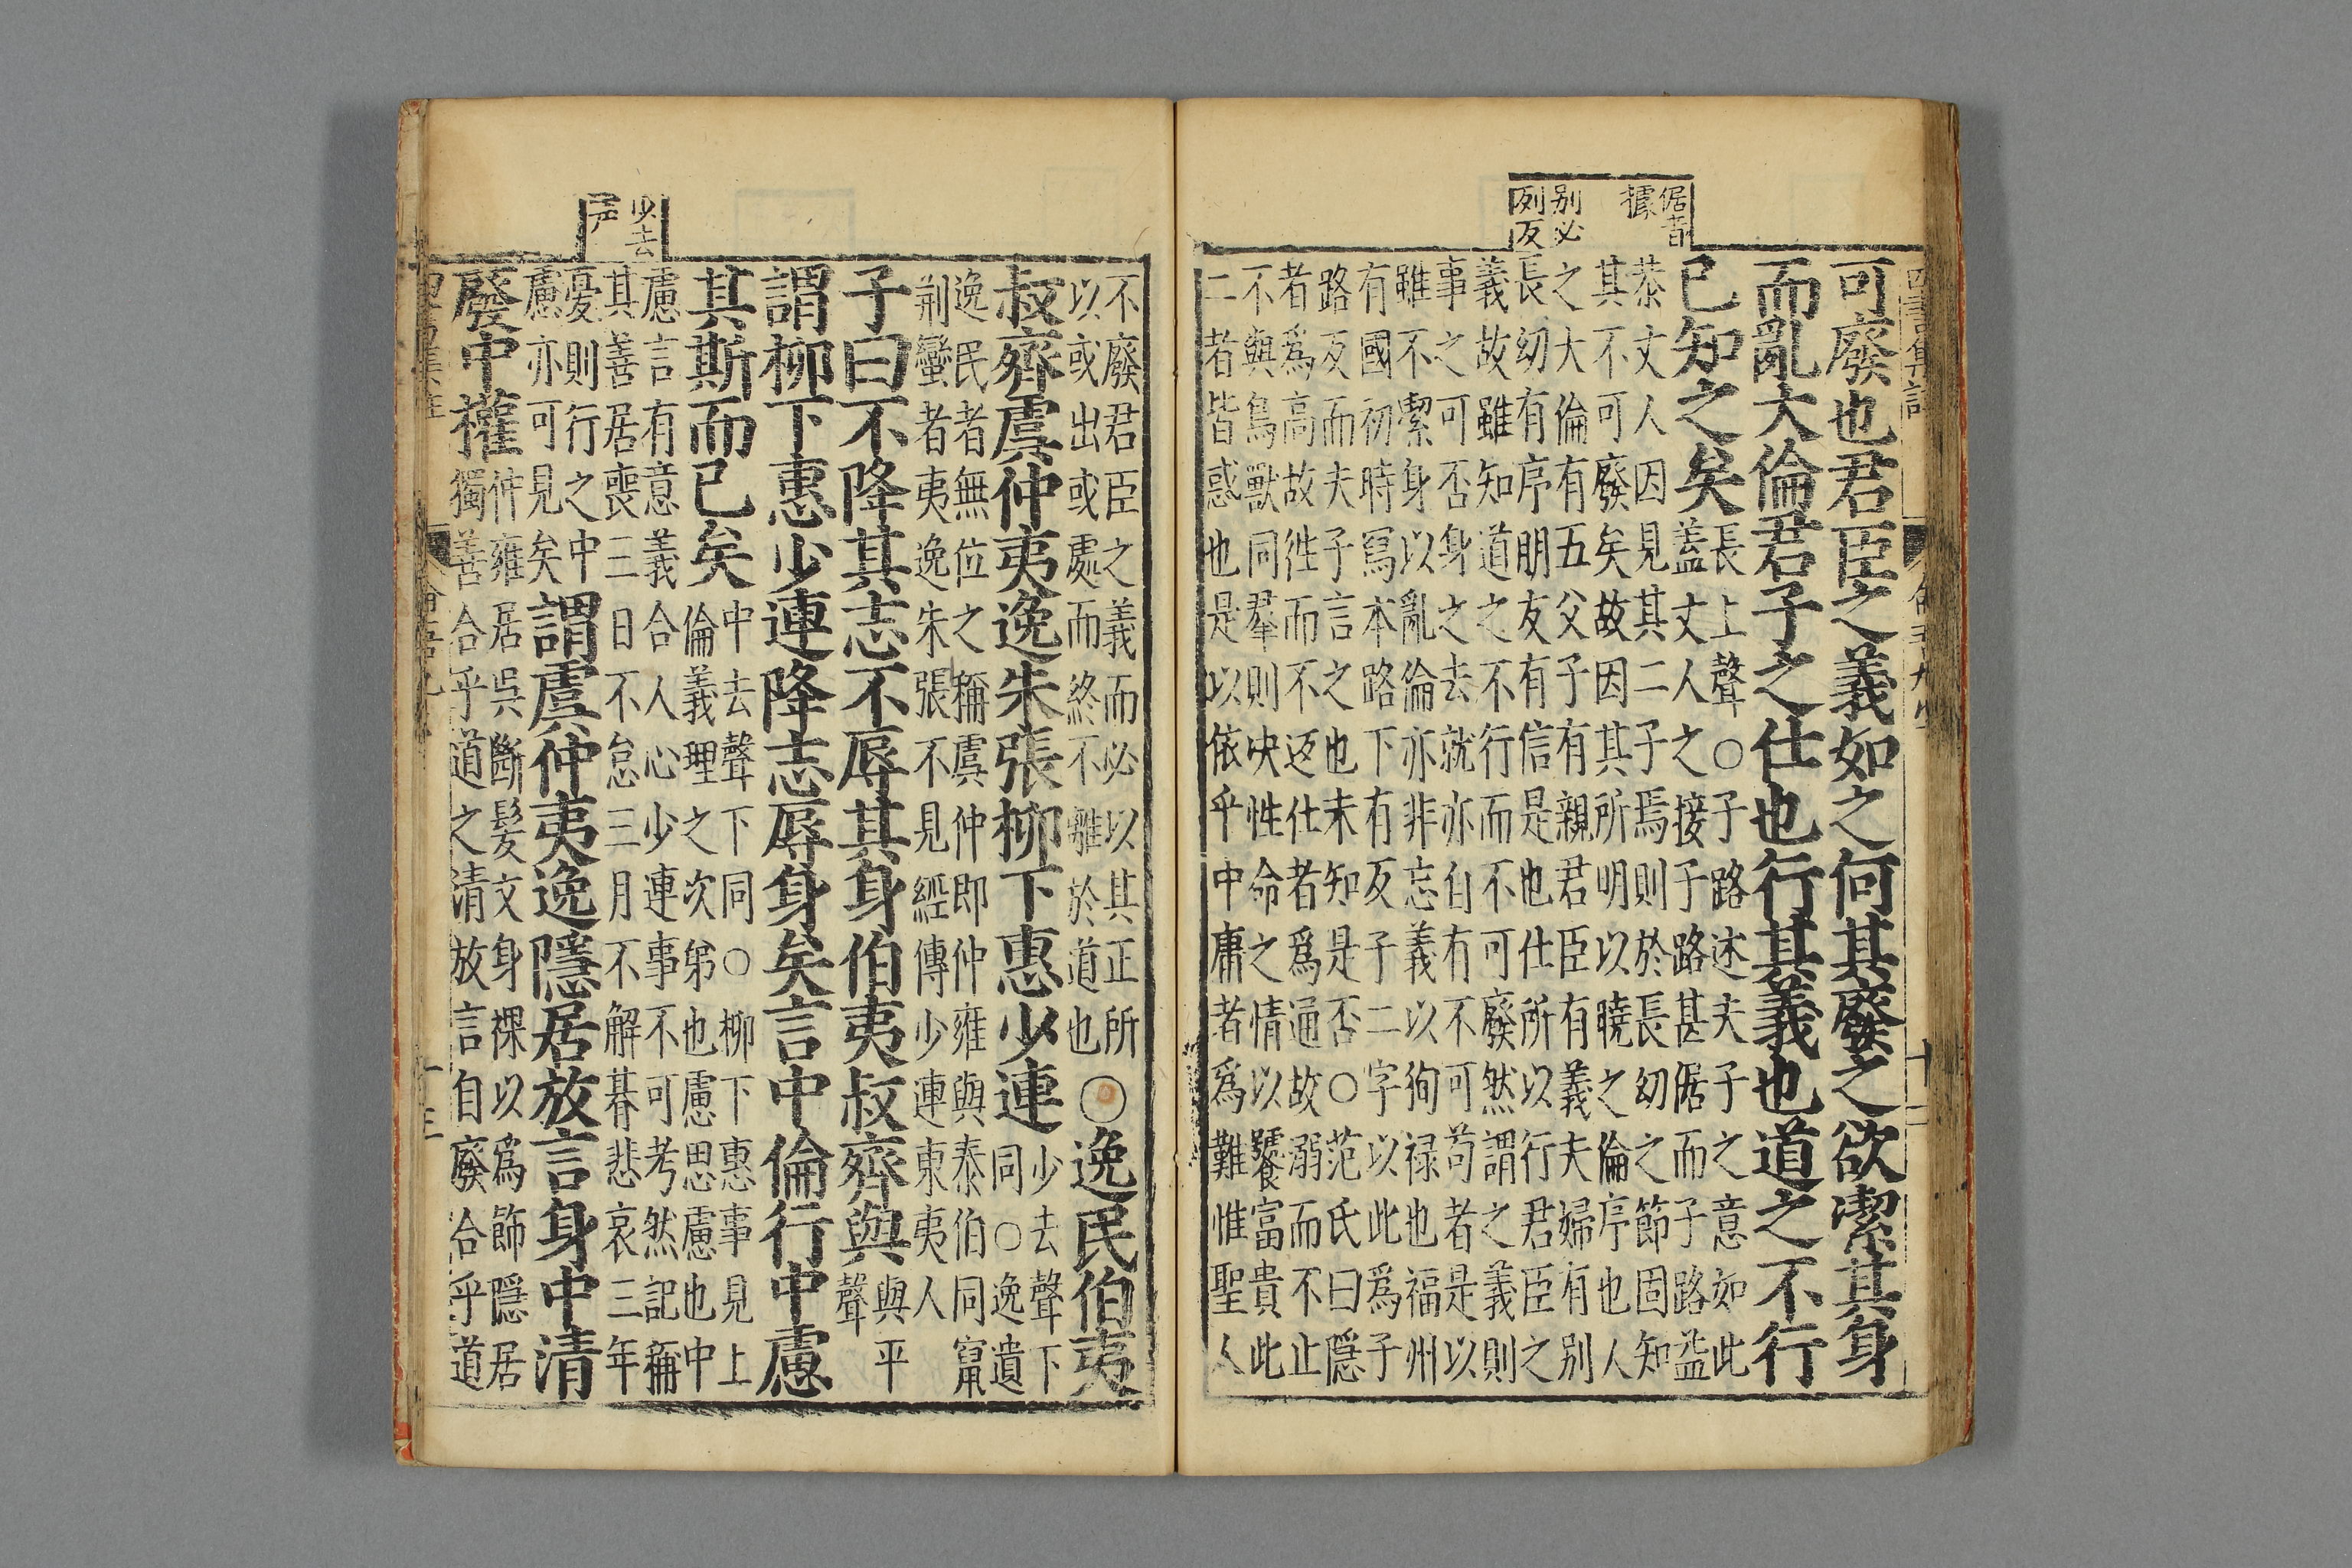 倨音
據
别必
列反
可廢也君臣之義如之何其廢之欲潔其身
而亂大倫君子之仕也行其義也道之不行
已知之矣
長上聲○子路述夫子之意如此
蓋丈人之接子路甚倨而子路益
恭丈人因見其二子焉則於長幼之節固知
其不可廢矣故因其所明以曉之倫序也人
之大倫有五父子有親君臣有義夫婦有别
長幼有序朋友有信是也仕所以行君臣之
義故雖知道之不行而不可廢然謂之義則
事之可否身之去就亦自有不可苟者是以
雖不潔身以亂倫亦非忘義以徇祿也福州
有國初時寫本路下有反子二字以此爲子
路反而夫子言之也未知是否○范氏曰隱
者爲高故徃而不返仕者爲通故溺而不止
不與鳥獸同羣則决性命之情以饕富貴此
二者皆惑也是以依乎中庸者爲難惟聖人
少去
声
不廢君臣之義而必以其正所
以或出或處而終不離於道也
○逸民伯夷
叔齊虞仲夷逸朱張柳下惠少連
少去聲下
同○逸遺
逸民者無位之稱虞仲即仲雍與泰伯同竄
荆蠻者夷逸朱張不見經傳少連東夷人
子曰不降其志不辱其身伯夷叔齊與
與平
聲
謂柳下惠少連降志辱身矣言中倫行中慮
其斯而已矣
中去聲下同○柳下惠事見上
倫義理之次第也慮思慮也中
慮言有意義合人心少連事不可考然記稱
其善居喪三日不怠三月不解朞悲哀三年
憂則行之中
慮亦可見矣
謂虞仲夷逸隱居放言身中清
廢中權
仲雍居吳斷髮文身裸以爲飾隱居
獨善合乎道之清放言自廢合乎道